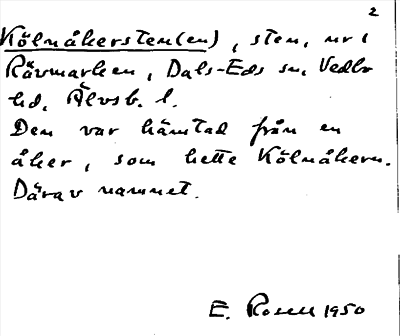 2
Kölnåkersten(en), sten, nr i
Rävmarken, Dals-Eds sn, Vedbo
hd, Älvsb. l.
Den var hämtad från en
åker, som hette Kölnåkern.
Därav namnet.
E. Rosell 1950